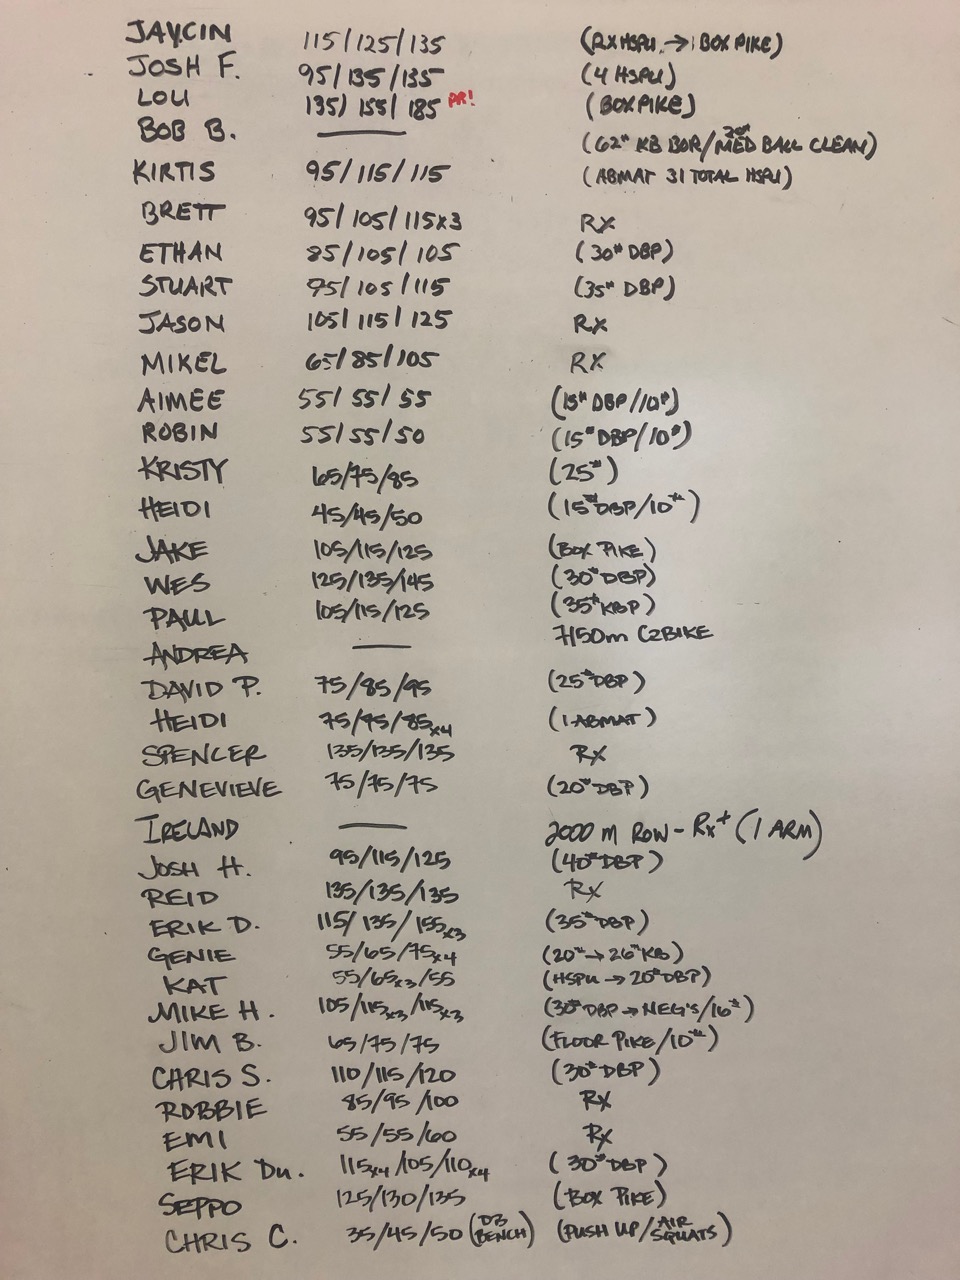 JAYCIN 115/125/135 (RX HSPU → BOX PIKE)
JOSH F. 95/135/135 (4 HSPU)
LOU 135/155/185 PR! (BOX PIKE)
BOB B. — (62# KB BOR/20# MED BALL CLEAN)
KIRTIS 95/115/115 (ABMAT 31 TOTAL HSPU)
BRETT 95/105/115x3 RX
ETHAN 85/105/105 (30# DBP)
STUART 95/105/115 (35# DBP)
JASON 105/115/125 RX
MIKEL 65/85/105 RX
AIMEE 55/55/55 (15# DBP/10#)
ROBIN 55/55/50 (15# DBP/10#)
KRISTY 65/75/85 (25#)
HEIDI 45/45/50 (15# DBP/10#)
JAKE 105/115/125 (BOX PIKE)
WES 125/135/145 (30# DBP)
PAUL 105/115/125 (35# KBP)
ANDREA — 7150m C2BIKE
DAVID P. 75/85/95 (25# DBP)
HEIDI 75/95/85x4 (1 ABMAT)
SPENCER 135/135/135 RX
GENEVIEVE 75/75/75 (20# DBP)
IRELAND — 2000 m ROW - RX+ (1 ARM)
JOSH H. 95/115/125 (40# DBP)
REID 135/135/135 RX
ERIK D. 115/135/155x3 (35# DBP)
GENIE 55/65/75x4 (20# → 26# KB)
KAT 55/65x3/55 (HSPU → 20# DBP)
MIKE H. 105/115x3/115x3 (30# DBP → NEG'S/16#)
JIM B. 65/75/75 (FLOOR PIKE/10#)
CHRIS S. 110/115/120 (30# DBP)
ROBBIE 85/95/100 RX
EMI 55/55/60 RX
ERIK Du. 115x4/105/110x4 (30# DBP)
SEPPO 125/130/135 (BOX PIKE)
CHRIS C. 35/45/50 (DB BENCH) (PUSH UP/AIR SQUATS)